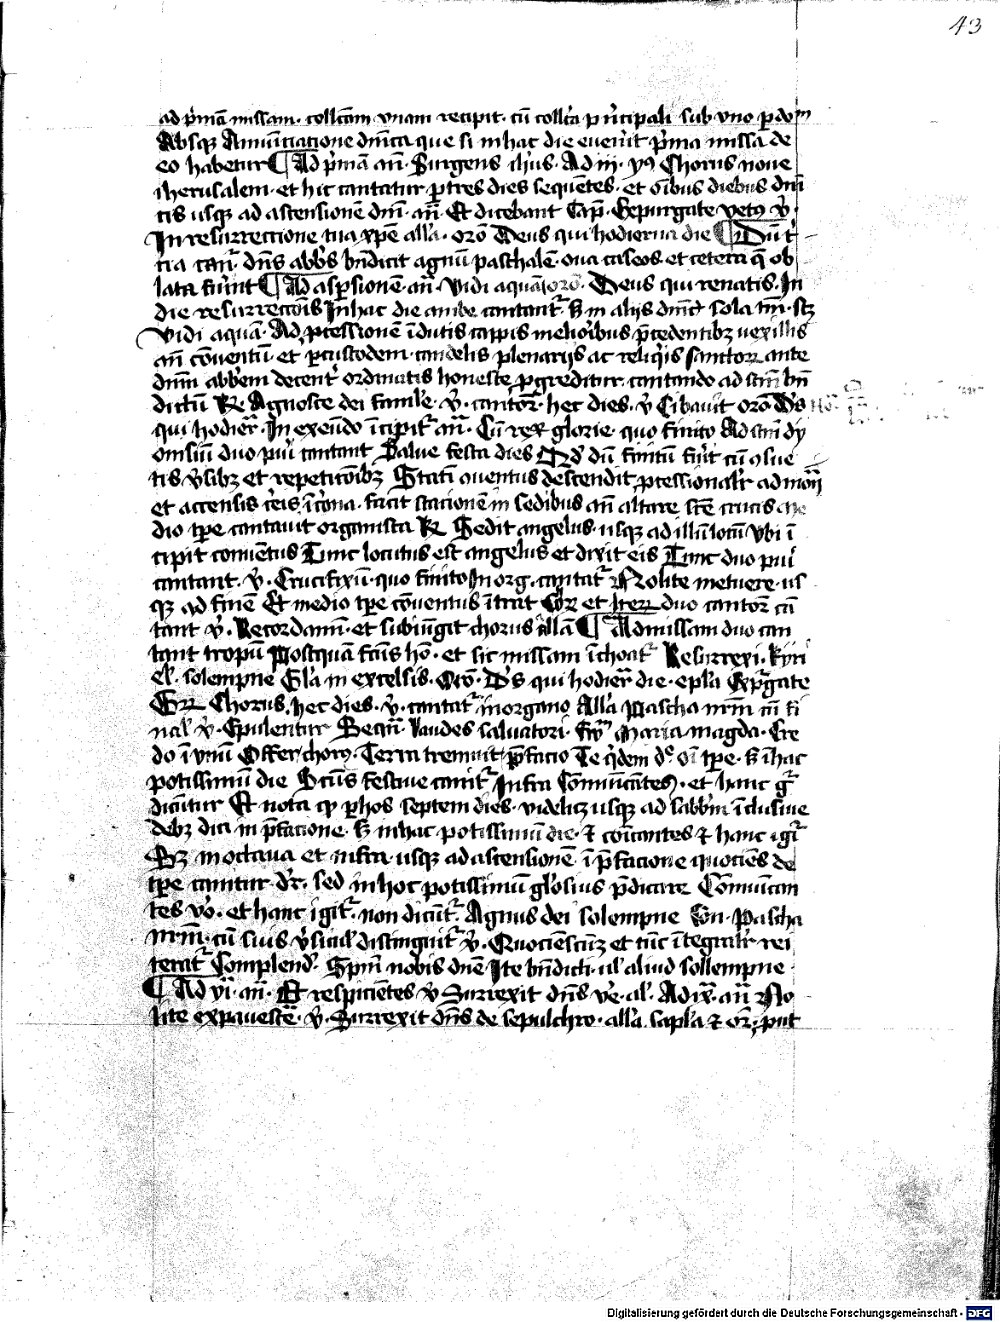 43
ad p̄mā missam · collcām vnam recipit · cū coll'ca p n̄cipali sub vno per dom
Absqꝫ Annūciatione dnīca que si in hac die euen'it p̄ma missa de
eo habetur ¶ Ad p̄mā an̄ Surgens ih'us · Ad iij · Chorus noue
iherusalem · et hic cantatur p tres dies sequētes · et oībus diebus dnī
cis usqꝫ ad ascensionē dnī · an̄ · Et dicebant Cap̄ · Expurgate vetꝰ v̄ ·
In resurrectione tua xp̄e all'a · orō Deus qui hodierna die ¶ Dūt'
tia can̄ · dn̄s abb's bn̄dicit agnū paschalē · oua caseos · et cetera q̄ ob
lata fu'int ¶ Ad asp'sionē an̄ · Vidi aquā · orō · Deus qui renatis · In
die resurrecōis In hac die ambe cantant' · s in alijs dnīc' sola tm̄ · scꝫ
vidi aquā · Ad p'cessionē īdutis cappis meliorībus p̄cedentibꝫ vexillis
an̄ cōuentū · et p custodem · candelis plenarijs ac reliq'is sanctoꝝ ante
dnm̄ abb'em decent' ordinatis honeste pgreditur · cantando ad scm̄ bn̄
dictū ℟ Agnosce dei famule · v̄ · cantor' · hec dies · v̄ Cibauit orō D's
qui hodier' · In exeūdo īcipit' an̄ · Cū rex glorie · quo finito Ad scm̄ dy
onisiū duo pu'i cantant Salue festa dies Qd' dū finitū fu'it cū ꝯsue
tis v'sibꝫ et repeticōibꝫ Statī ꝯuentus descendit p'cessional'r ad mon̄
et accensis c'eis ī cōna · facit stacionē in sedibus an̄ altare sc̄e crucis me
dio tp̄e cantauit organista ℟ Sedit angelus · usqꝫ ad illū locū vbi ī
cipit conuētus Tunc locutus est angelus et dixit eis Tunc duo pu'i
cantant · v̄ · Crucifixū · quo finito In org · cantat' Nolite metuere · us
qꝫ ad finē Et medio tp̄e cōuentus ītrat Coꝝ et Iteꝝ duo cantor' cā
tant v̄ · Recordamī · et subiūgit chorus allā ¶ Ad missam duo can
tant tropū Postquā fcūs hō · et sic missam īchoat' Resurrexi · kyri
el' · solempne Gl'a in excelsis · Orō · D's qui hodier' die · epl'a Exp̄gate
Chorus · hec dies · v̄ · cantat' in organo All'a Pascha nr̄m
nal' v̄ · Epulentur Sequī · Laudes saluatori · Maria magda · Cre
do ī vnū Offer chorꝰ · Terra tremuit p̄facio Te q'dem dn̄e oī tp̄e · s ī hac
potissimū die Scūs festiue canit' Infra Comūicātes · et hanc g'
dicūtur Et nota qꝫ p hos septem dies · videlicꝫ usqꝫ ad sabb'm īclusiue
debꝫ dici in p̄facione · s in hac potissimū die · ⁊ cōicantes ⁊ hanc igī'
Sꝫ in octaua et infra usqꝫ ad ascensionē ī p̄facione quociēs de
tp̄e canitur · dr̄ · sed in hoc potissimū gl'osius p̄dicare Comūican
tes v'o · et hanc igit' · non dicūt' · Agnus dei solempne Con · Pascha
nr̄m · cū suis v'sicul' distinguit' v̄ · Quociēscūqꝫ et tūc ītegral'r rei
terat' Complend' · Spm̄ nobis dn̄e Ite bn̄dicti · ul' aliud sollempne ·
¶ Ad vi · an̄ · Et respiciētes v̄ Surrexit dn̄s ve · al' · Ad ix · an̄ No
lite expauesc'e · v̄ · Surrexit dn̄s de sepulchro · all'a · capl'a ⁊ or' · put
Digitalisierung gefördert durch die Deutsche Forschungsgemeinschaft · DFG